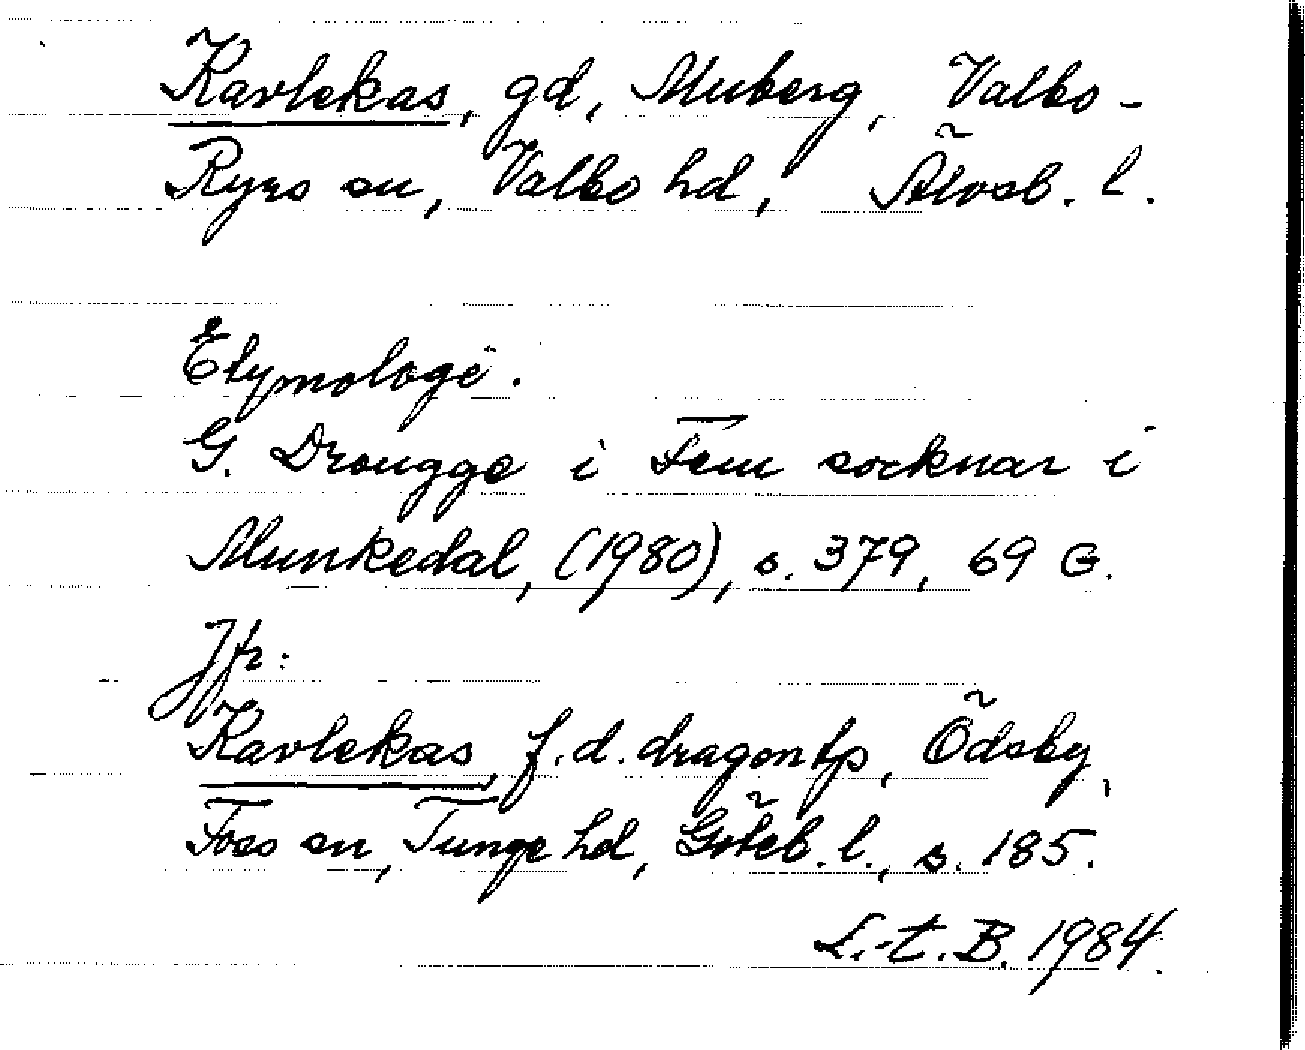 Kavlekas, gd, Muberg, Valbo-
Ryrs sn, Valbo hd, Älvsb. l.
Etymologi.
G. Drougge i Fem socknar i
Munkedal, (1980), s. 379, 69 G.
Jfr:
Kavlekas, f.d. dragontp, Ödsby,
Foss sn, Tunge hd, Göteb. l., s. 185.
L.-t. B. 1984.